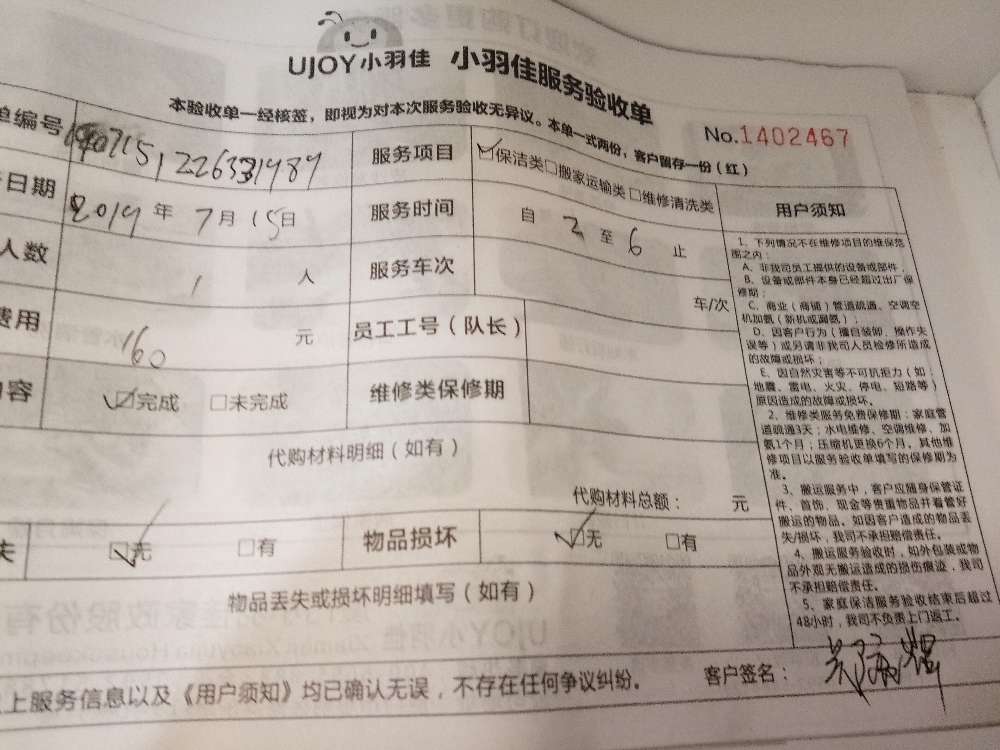 UJOY小羽佳 小羽佳服务验收单
本验收单一经核签，即视为对本次服务验收无异议。本单一式两份，客户留存一份（红）
No.1402467
单编号
服务项目 保洁类 □搬家运输类 □维修清洗类
日期 2019年7月15日
服务时间 自 2 至 6 止
人数 1 人
服务车次 车/次
费用 160 元
员工工号（队长）
内容 完成 □未完成
维修类保修期
代购材料明细（如有）
代购材料总额： 元
失 无 □有
物品损坏 无 □有
物品丢失或损坏明细填写（如有）
上服务信息以及《用户须知》均已确认无误，不存在任何争议纠纷。
客户签名：
用户须知
1、下列情况不在维修项目的维保范
围之内：
A、非我司员工提供的设备或部件，
B、设备或部件本身已经超过出厂保
修期；
C、商业（商铺）管道疏通、空调空
机加氨（新机或漏氨）；
D、因客户行为（擅自装卸、操作失
误等）或另请非我司人员检修所造成
的故障或损坏；
E、因自然灾害等不可抗拒力（如：
地震、雷电、火灾、停电、短路等）
原因造成的故障或损坏。
2、维修类服务免费保修期：家庭管
道疏通3天；水电维修、空调维修、加
氨1个月；压缩机更换6个月。其他维
修项目以服务验收单填写的保修期为
准。
3、搬运服务中，客户应随身保管证
件、首饰、现金等贵重物品并看管好
搬运的物品。如因客户造成的物品丢
失/损坏，我司不承担赔偿责任。
4、搬运服务验收时，如外包装或物
品外观无搬运造成的损伤痕迹，我司
不承担赔偿责任。
5、家庭保洁服务验收结束后超过
48小时，我司不负责上门返工。